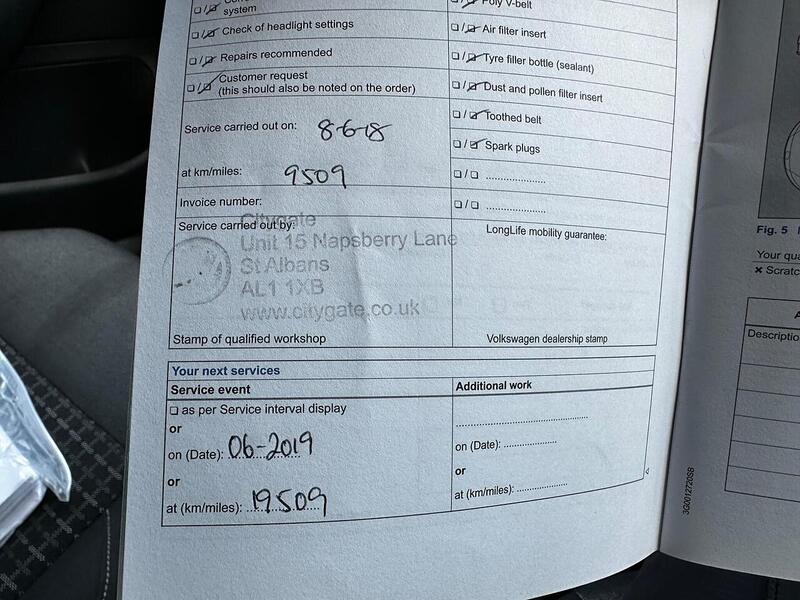 system
Check of headlight settings
Repairs recommended
Customer request
(this should also be noted on the order)
Service carried out on: 8-6-18
at km/miles: 9509
Invoice number:
Service carried out by:
Citygate
Unit 15 Napsberry Lane
St Albans
AL1 1XB
www.citygate.co.uk
Stamp of qualified workshop
Poly V-belt
Air filter insert
Tyre filler bottle (sealant)
Dust and pollen filter insert
Toothed belt
Spark plugs
LongLife mobility guarantee:
Volkswagen dealership stamp
Your next services
Service event
as per Service interval display
or
on (Date): 06-2019
or
at (km/miles): 19509
Additional work
on (Date):
or
at (km/miles):
3G0012720SB
Fig. 5
Your qua
× Scratc
Descriptio